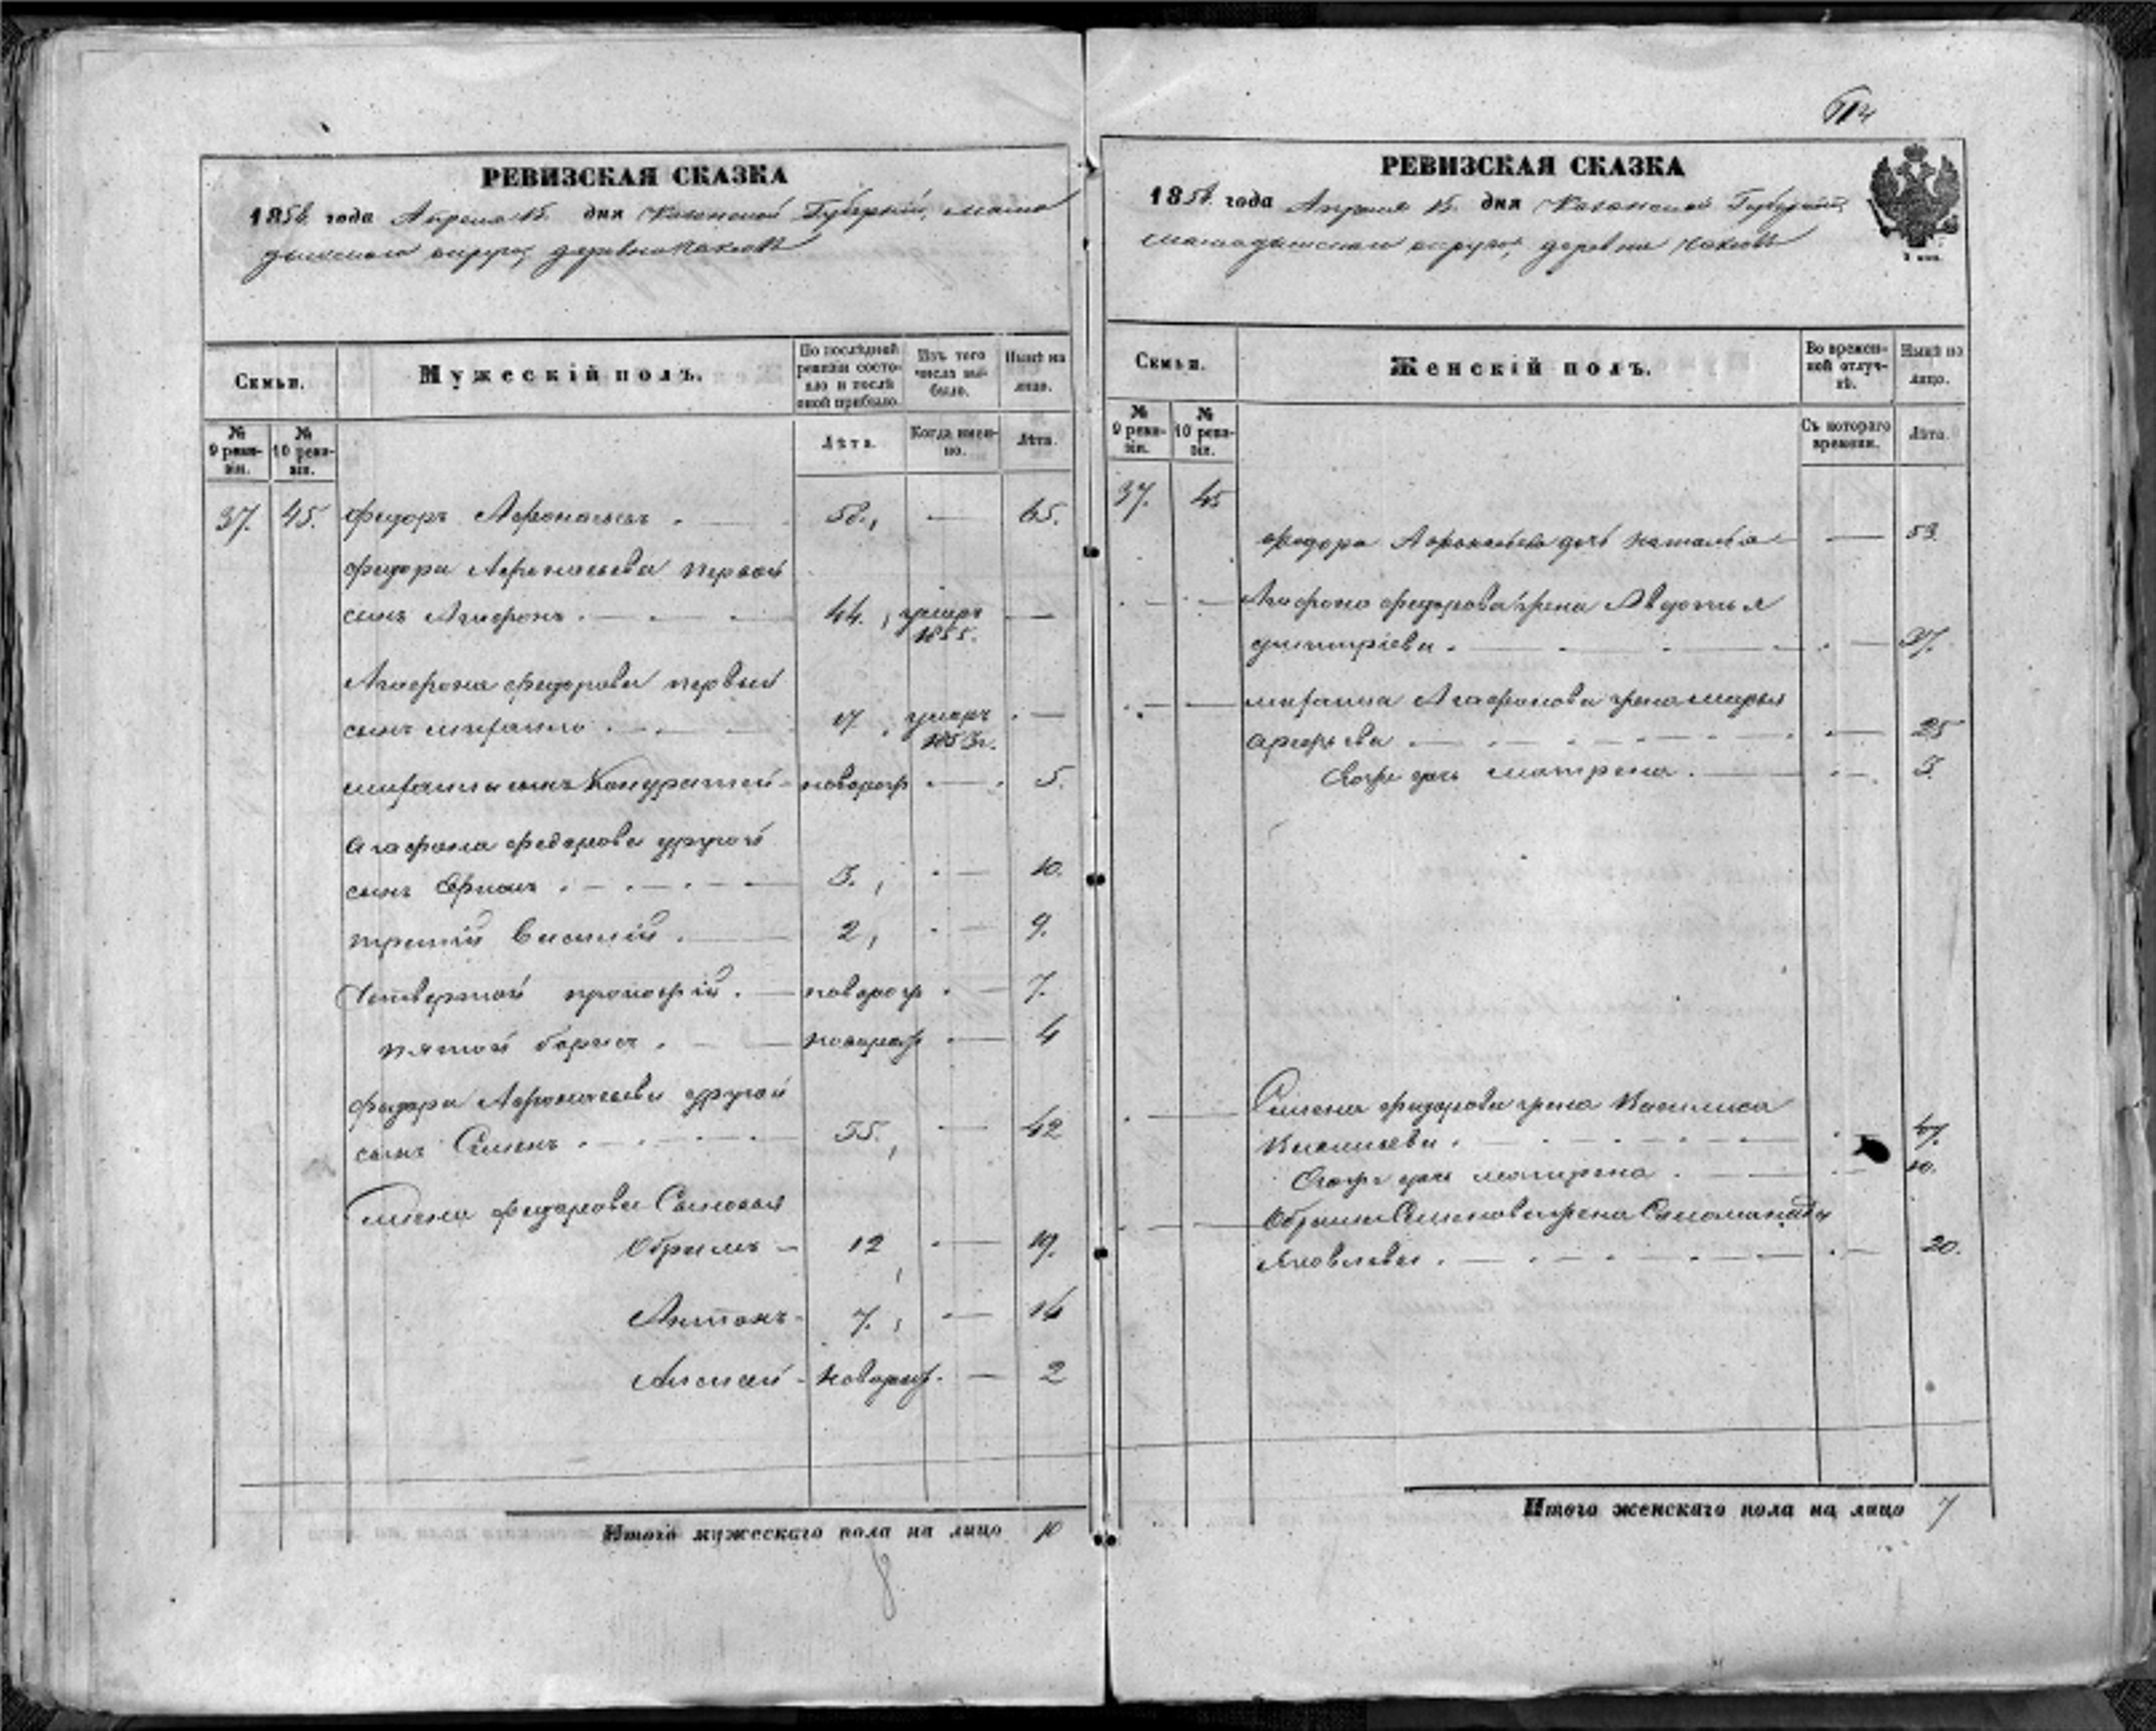 РЕВИЗСКАЯ СКАЗКА
1858 года Апреля 15 дня Казанской Губерніи, мама
дышскаго округа, деревни
Семьи.
Мужескій полъ.
По послѣдней ревизіи состояло и послѣ оной прибыло.
Изъ того числа выбыло.
Нынѣ на лицо.
№ 9 ревизіи.
№ 10 ревизіи.
Лѣта.
Когда именно.
Лѣта.
37. 45. Федоръ Афонасьевъ . — 58., — 65.
Федора Афонасьева первой
сынъ Агафонъ . — . — 44., умеръ 1855. —
Агафона Федорова первый
сынъ Михайло . — . 17, умеръ 1853г. . —
Михайлы сынъ Кондратей — новорож . — . 5.
Агафона Федорова другой
сынъ . — . — . — 3., . — 10.
третій Василій . — 2, . — 9.
Четвертой Прокофій . — новорож . — 7.
пятой Борисъ . — новорож . — 4
Федора Афонасьева другой
сынъ Семенъ . — . — 35., . — 42
Семена Федорова Сыновья
Ефримъ — 12, . — 19.
Антонъ — 7., . — 14
Алексей — новорож. — 2
Итого мужескаго пола на лицо 10
8
РЕВИЗСКАЯ СКАЗКА
1858 года Апреля 15. дня Казанской Губерніи,
мамадышскаго округа, деревни
Семьи.
Женскій полъ.
Во временной отлучкѣ.
Нынѣ на лицо.
№ 9 ревизіи.
№ 10 ревизіи.
Съ котораго времени.
Лѣта.
37. 45
Федора Афонасьева дочь Наталья — — 53.
. — . — Агафона Федорова жена Авдотья
Дмитріева . — . — . — . — 37.
. — . — Михайла Агафонова жена Марья
— . — . — . — 25
Ево дочь Матрена . — . — . 3.
. — Семена Федорова жена Василиса
Васильева . — . — . — 47.
Ево дочь Матрена . — . — 10.
. — Семенова жена Соломанида
Яковлева . — . — . — . — 20.
Итого женскаго пола на лицо 7